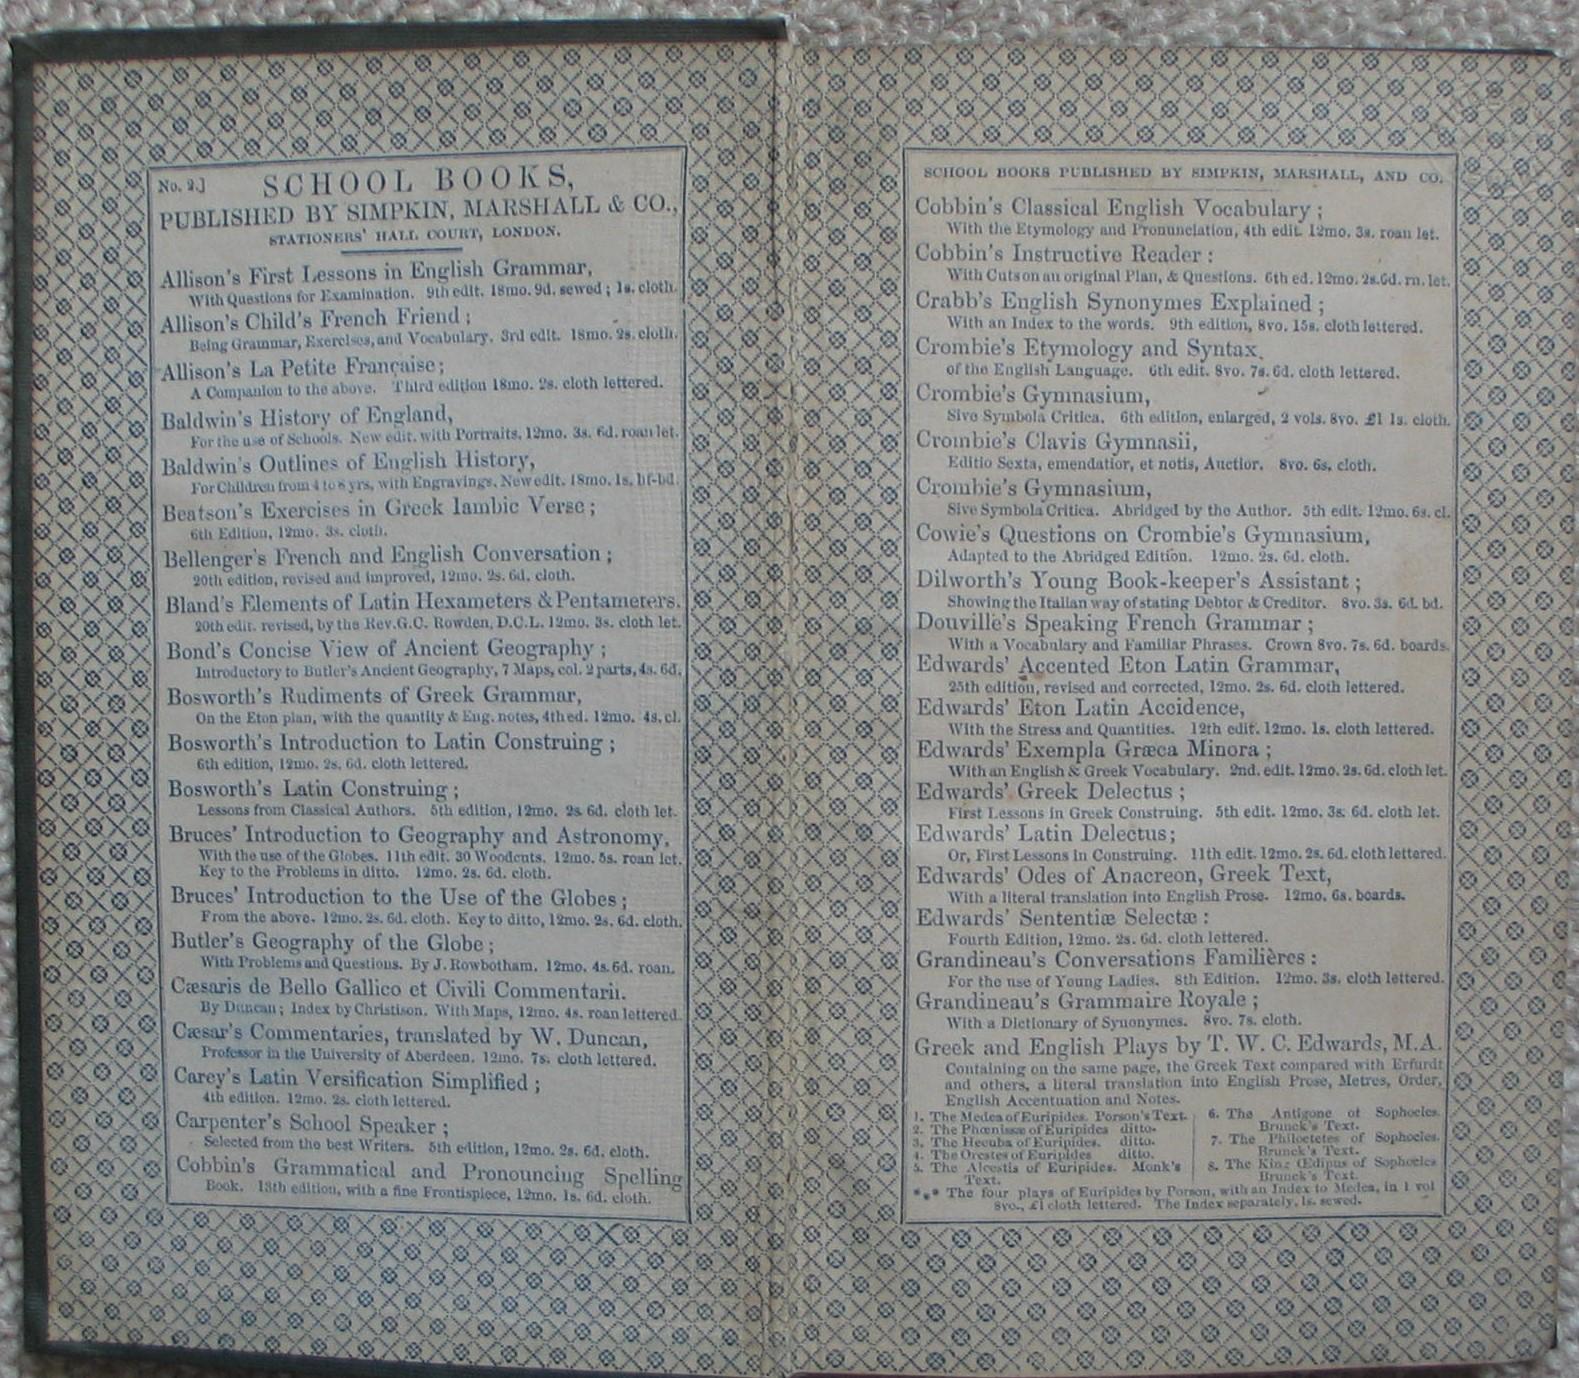 No. 2.]
SCHOOL BOOKS,
PUBLISHED BY SIMPKIN, MARSHALL & CO.,
STATIONERS' HALL COURT, LONDON.
Allison's First Lessons in English Grammar,
With Questions for Examination. 9th edit. 18mo. 9d. sewed; 1s. cloth.
Allison's Child's French Friend;
Being Grammar, Exercises, and Vocabulary. 3rd edit. 18mo. 2s. cloth.
Allison's La Petite Française;
A Companion to the above. Third edition 18mo. 2s. cloth lettered.
Baldwin's History of England,
For the use of Schools. New edit. with Portraits, 12mo. 3s. 6d. roan let.
Baldwin's Outlines of English History,
For Children from 4 to 8 yrs, with Engravings. New edit. 18mo. 1s. hf-bd.
Beatson's Exercises in Greek Iambic Verse;
6th Edition, 12mo. 3s. cloth.
Bellenger's French and English Conversation;
20th edition, revised and improved, 12mo. 2s. 6d. cloth.
Bland's Elements of Latin Hexameters & Pentameters.
20th edit. revised, by the Rev. G. C. Rowden, D.C.L. 12mo. 3s. cloth let.
Bond's Concise View of Ancient Geography;
Introductory to Butler's Ancient Geography, 7 Maps, col. 2 parts, 4s. 6d.
Bosworth's Rudiments of Greek Grammar,
On the Eton plan, with the quantity & Eng. notes, 4th ed. 12mo. 4s. cl.
Bosworth's Introduction to Latin Construing;
6th edition, 12mo. 2s. 6d. cloth lettered.
Bosworth's Latin Construing;
Lessons from Classical Authors. 5th edition, 12mo. 2s. 6d. cloth let.
Bruces' Introduction to Geography and Astronomy,
With the use of the Globes. 11th edit. 30 Woodcuts. 12mo. 5s. roan let.
Key to the Problems in ditto. 12mo. 2s. 6d. cloth.
Bruces' Introduction to the Use of the Globes;
From the above. 12mo. 2s. 6d. cloth. Key to ditto, 12mo. 2s. 6d. cloth.
Butler's Geography of the Globe;
With Problems and Questions. By J. Rowbotham. 12mo. 4s. 6d. roan.
Cæsaris de Bello Gallico et Civili Commentarii.
By Duncan; Index by Christison. With Maps, 12mo. 4s. roan lettered.
Cæsar's Commentaries, translated by W. Duncan,
Professor in the University of Aberdeen. 12mo. 7s. cloth lettered.
Carey's Latin Versification Simplified;
4th edition. 12mo. 2s. cloth lettered.
Carpenter's School Speaker;
Selected from the best Writers. 5th edition, 12mo. 2s. 6d. cloth.
Cobbin's Grammatical and Pronouncing Spelling
Book. 13th edition, with a fine Frontispiece, 12mo. 1s. 6d. cloth.
SCHOOL BOOKS PUBLISHED BY SIMPKIN, MARSHALL, AND CO.
Cobbin's Classical English Vocabulary;
With the Etymology and Pronunciation, 4th edit. 12mo. 3s. roan let.
Cobbin's Instructive Reader:
With Cuts on an original Plan, & Questions. 6th ed. 12mo. 2s. 6d. rn. let.
Crabb's English Synonymes Explained;
With an Index to the words. 9th edition, 8vo. 15s. cloth lettered.
Crombie's Etymology and Syntax,
of the English Language. 6th edit. 8vo. 7s. 6d. cloth lettered.
Crombie's Gymnasium,
Sive Symbola Critica. 6th edition, enlarged, 2 vols. 8vo. £1 1s. cloth.
Crombie's Clavis Gymnasii,
Editio Sexta, emendatior, et notis, Auctior. 8vo. 6s. cloth.
Crombie's Gymnasium,
Sive Symbola Critica. Abridged by the Author. 5th edit. 12mo. 6s. cl.
Cowie's Questions on Crombie's Gymnasium,
Adapted to the Abridged Edition. 12mo. 2s. 6d. cloth.
Dilworth's Young Book-keeper's Assistant;
Showing the Italian way of stating Debtor & Creditor. 8vo. 3s. 6d. bd.
Douville's Speaking French Grammar;
With a Vocabulary and Familiar Phrases. Crown 8vo. 7s. 6d. boards.
Edwards' Accented Eton Latin Grammar,
25th edition, revised and corrected, 12mo. 2s. 6d. cloth lettered.
Edwards' Eton Latin Accidence,
With the Stress and Quantities. 12th edit. 12mo. 1s. cloth lettered.
Edwards' Exempla Græca Minora;
With an English & Greek Vocabulary. 2nd. edit. 12mo. 2s. 6d. cloth let.
Edwards' Greek Delectus;
First Lessons in Greek Construing. 5th edit. 12mo. 3s. 6d. cloth let.
Edwards' Latin Delectus;
Or, First Lessons in Construing. 11th edit. 12mo. 2s. 6d. cloth lettered.
Edwards' Odes of Anacreon, Greek Text,
With a literal translation into English Prose. 12mo. 6s. boards.
Edwards' Sententiæ Selectæ:
Fourth Edition, 12mo. 2s. 6d. cloth lettered.
Grandineau's Conversations Familières:
For the use of Young Ladies. 8th Edition. 12mo. 3s. cloth lettered.
Grandineau's Grammaire Royale;
With a Dictionary of Synonymes. 8vo. 7s. cloth.
Greek and English Plays by T. W. C. Edwards, M.A.
Containing on the same page, the Greek Text compared with Erfurdt
and others, a literal translation into English Prose, Metres, Order,
English Accentuation and Notes.
1. The Medea of Euripides. Porson's Text.
2. The Phœnissæ of Euripides ditto.
3. The Hecuba of Euripides. ditto.
4. The Orestes of Euripides ditto.
5. The Alcestis of Euripides. Monk's
Text.
6. The Antigone of Sophocles.
Brunck's Text.
7. The Philoctetes of Sophocles.
Brunck's Text.
8. The King Œdipus of Sophocles
Brunck's Text.
*** The four plays of Euripides by Porson, with an Index to Medea, in 1 vol
8vo., £1 cloth lettered. The Index separately, 1s. sewed.